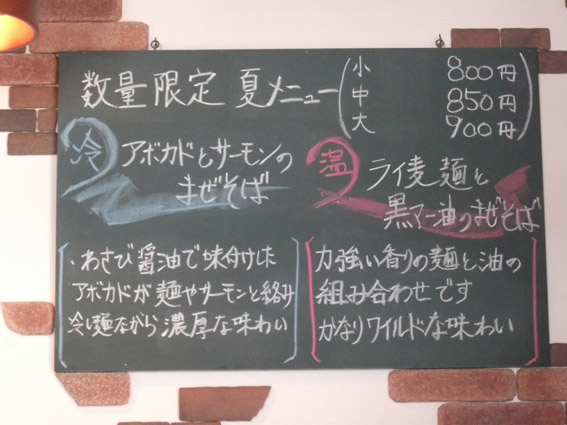 数量限定 夏メニュー
小 800円
中 850円
大 900円
冷 アボカドとサーモンの
まぜそば
・わさび醤油で味付けした
アボカドが麺やサーモンと絡み
冷し麺ながら濃厚な味わい
温 ライ麦麺と
黒マー油のまぜそば
力強い香りの麺と油の
組み合わせです
かなりワイルドな味わい